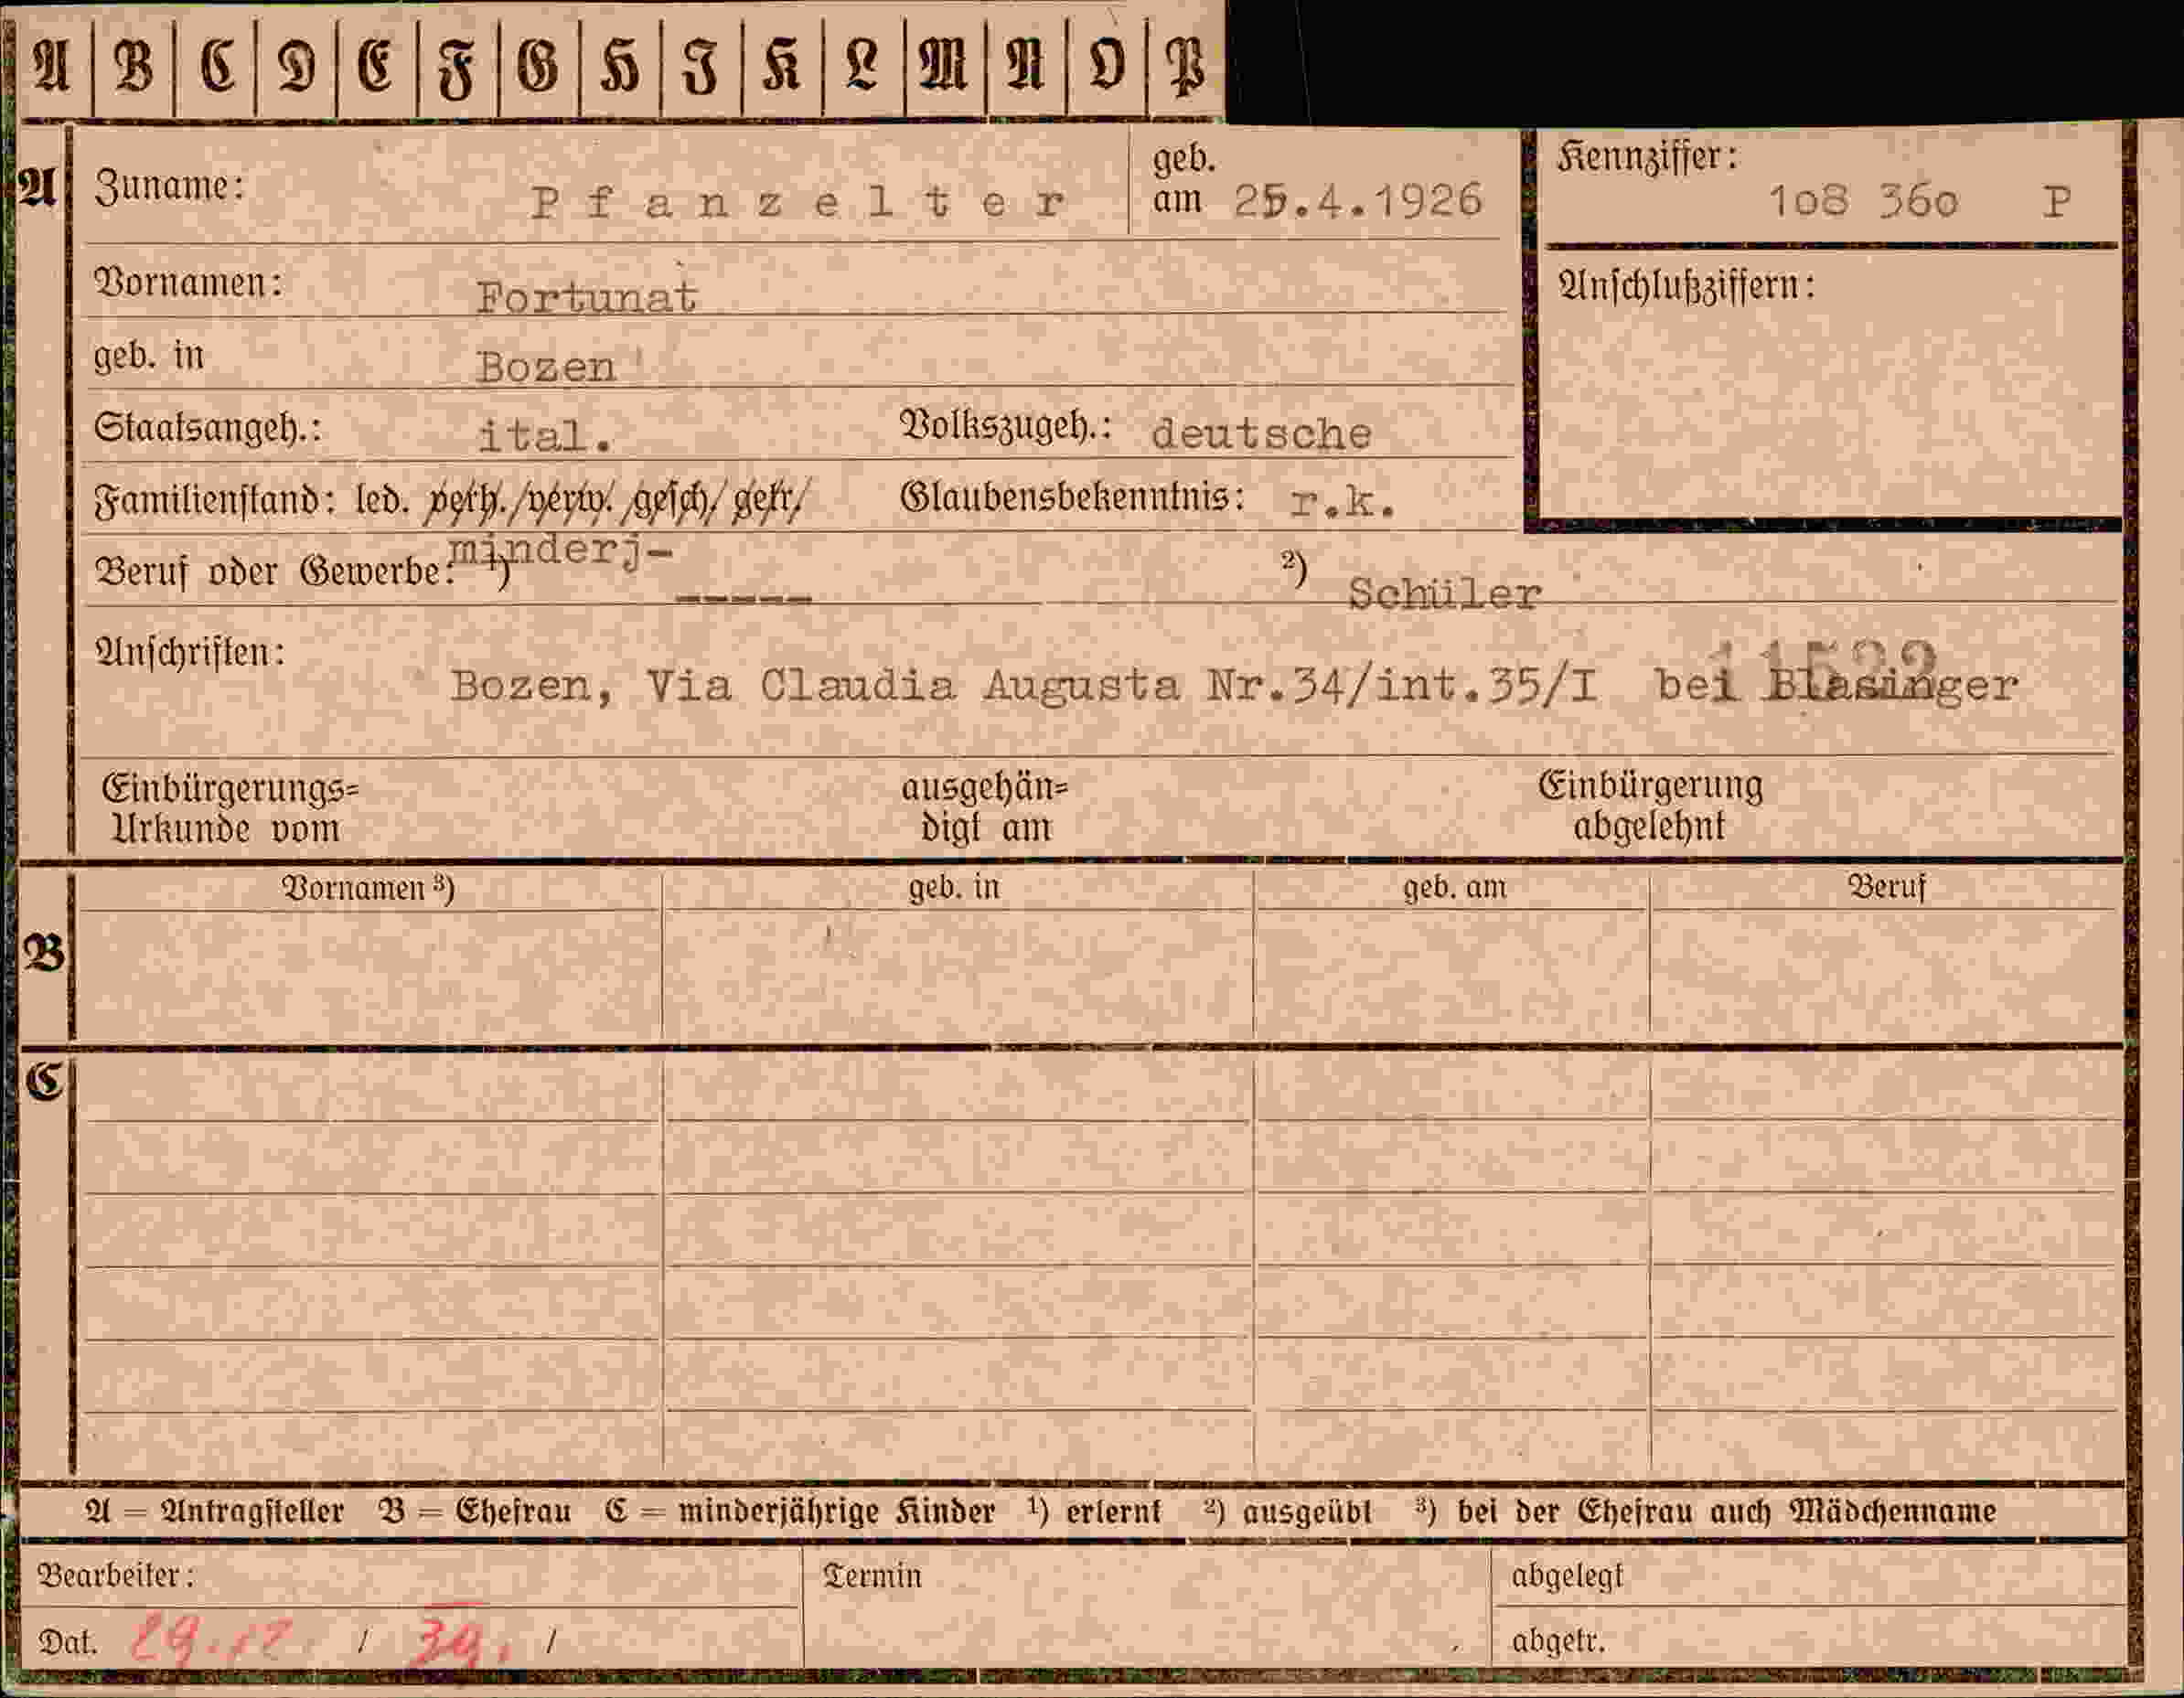 A B C D E F G H I K L M N O P
A Zuname: Pfanzelter geb. am 25.4.1926 Kennziffer: 108 360 P
Vornamen: Fortunat Anschlußziffern:
geb. in Bozen
Staatsangeh.: ital. Volkszugeh.: deutsche
Familienstand: led. verh./verw./gesch/getr/ Glaubensbekenntnis: r.k.
minderj-
Beruf oder Gewerbe: 1) ----- 2) Schüler
Anschriften:
Bozen, Via Claudia Augusta Nr.34/int.35/I bei Blasinger
Einbürgerungs= ausgehän= Einbürgerung
Urkunde vom digt am abgelehnt
Vornamen 3) geb. in geb. am Beruf
B
C
A = Antragsteller B = Ehefrau C = minderjährige Kinder 1) erlernt 2) ausgeübt 3) bei der Ehefrau auch Mädchenname
Bearbeiter: Termin abgelegt
Dat. 29.12. / 39. / abgetr.